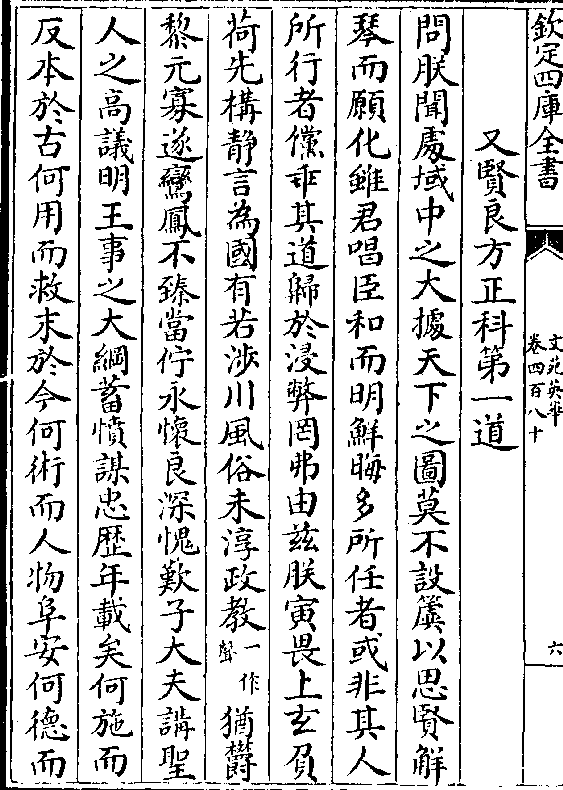 欽定四庫全書
文苑英華
卷四百八十
六
又賢良方正科第一道
問朕聞處域中之大據天下之圖莫不設簴以思賢解
琴而願化雖君唱臣和而明鮮晦多所任者或非其人
所行者儻非其道歸於浸弊罔弗由兹朕寅畏上玄負
荷先構静言為國有若渉川風俗未淳政教一作聲猶欝
黎元寡遂鸞鳳不臻當佇永懷良深愧歎子大夫講聖
人之高議明王事之大綱蓄憤謀忠歷年載矣何施而
反本於古何用而救末於今何術而人物阜安何德而